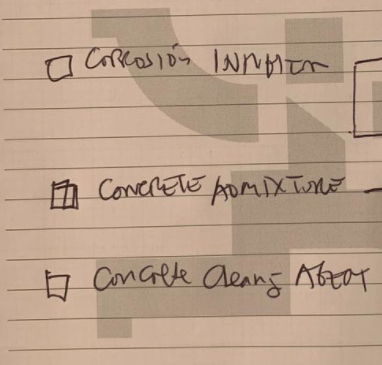 Corrosion Inhibitor
CONCRETE ADMIXTURE
Concrete Cleaning Agent